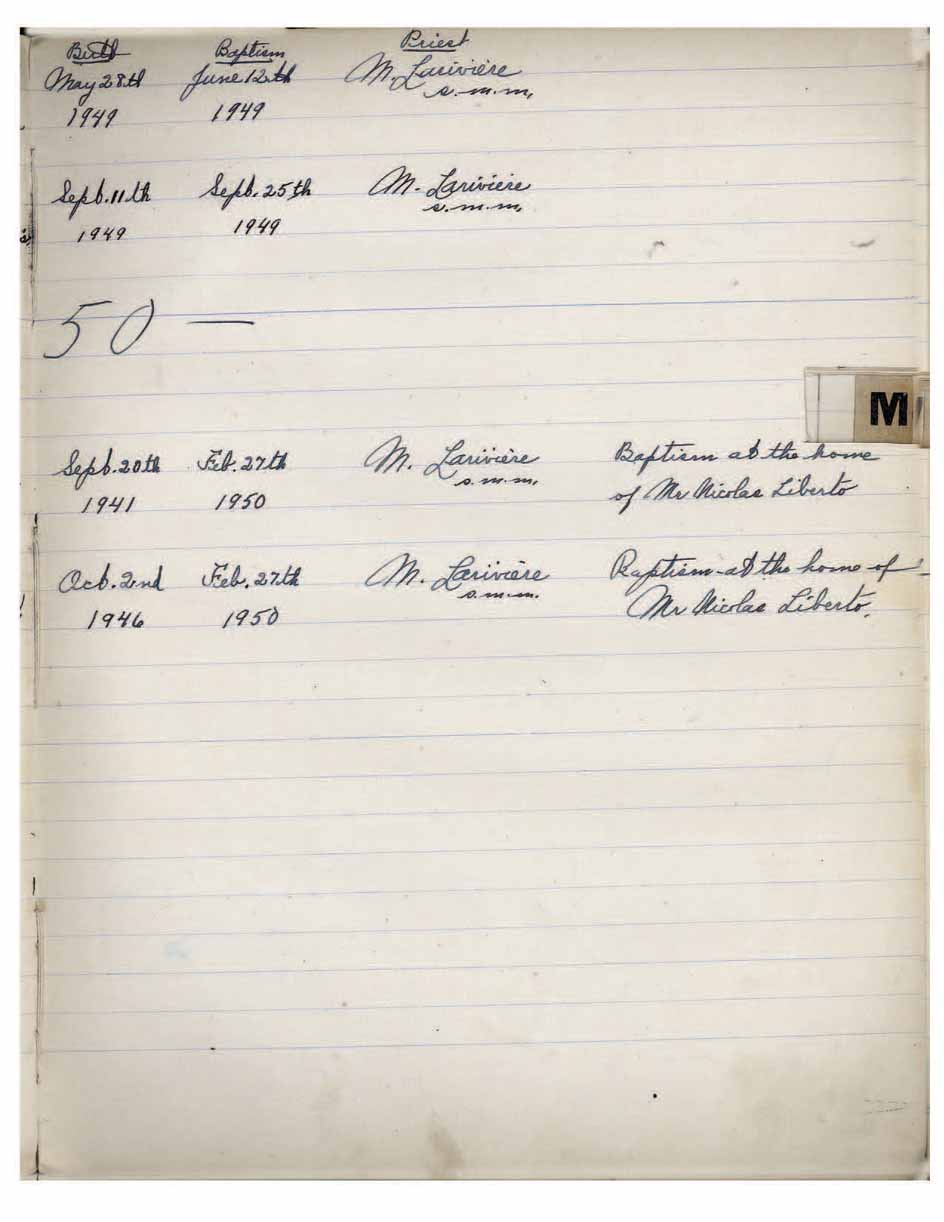 Birth Baptism Priest
May 28th June 12th M. Larivière
s.m.m.
1949 1949
Sept. 11th Sept. 25th M. Larivière
s.m.m.
1949 1949
50 —
M
Sept. 20th Feb. 27th M. Larivière Baptism at the home
s.m.m.
1941 1950 of Mr Nicolas Liberto
Oct. 2nd Feb. 27th M. Larivière Baptism at the home of
s.m.m.
1946 1950 Mr Nicolas Liberto.